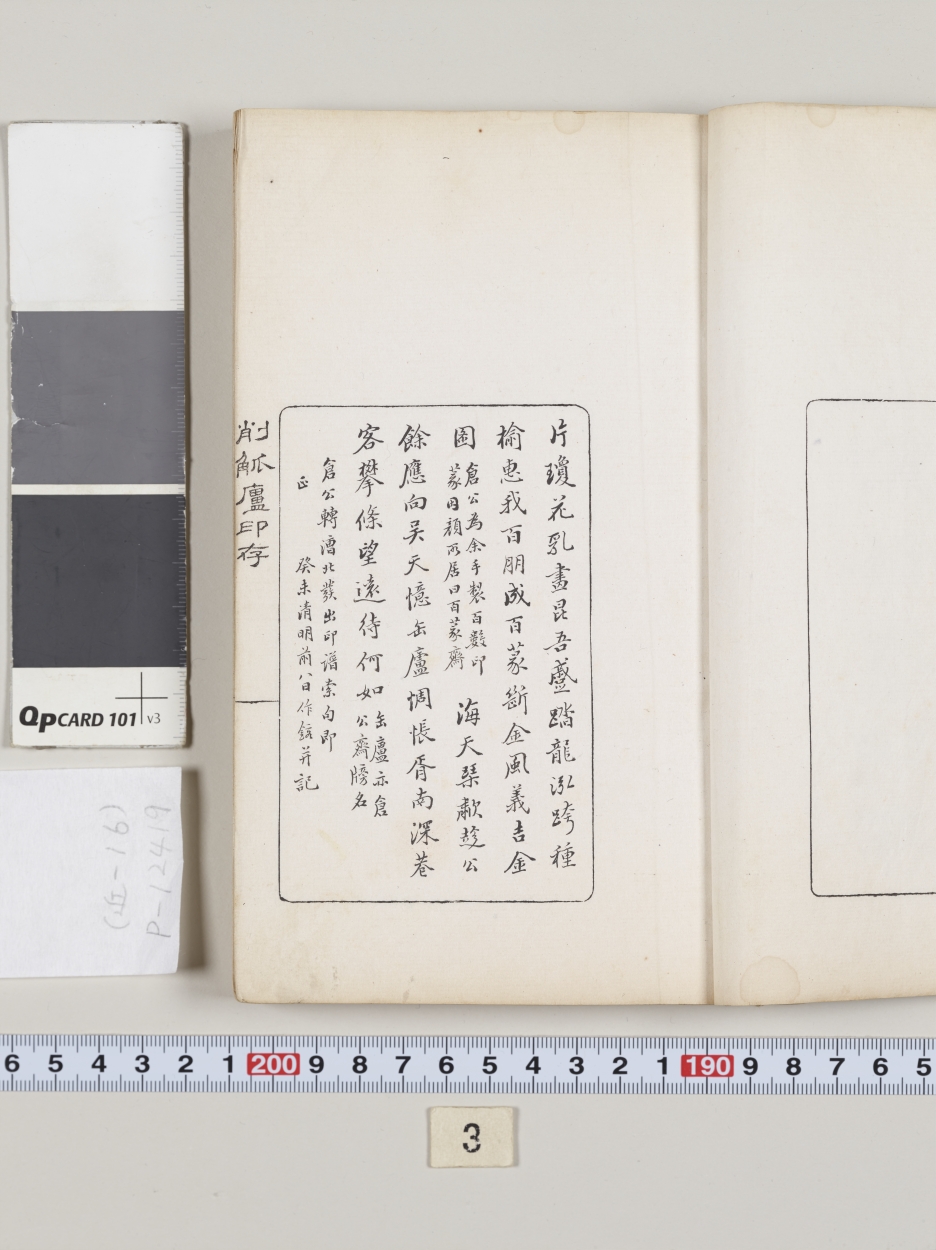 片瓊花乳畫昆吾盛踏龍泓跨種
榆惠我百朋成百篆斲金風義吉金
圖
倉公為余手製百數印
篆因顏所居曰百篆齋
海天琹歗趁公
餘應向吳天憶缶廬惆悵胥南深巷
客攀條望遠待何如
缶廬亦倉
公齋牓名
倉公轉漕北發出印譜索句即
正
癸未清明前八日作鋐并記
削觚廬印存
QPCARD 101 v3
(近-16)
P-12419
6 5 4 3 2 1 200 9 8 7 6 5 4 3 2 1 190 9 8 7 6 5
3